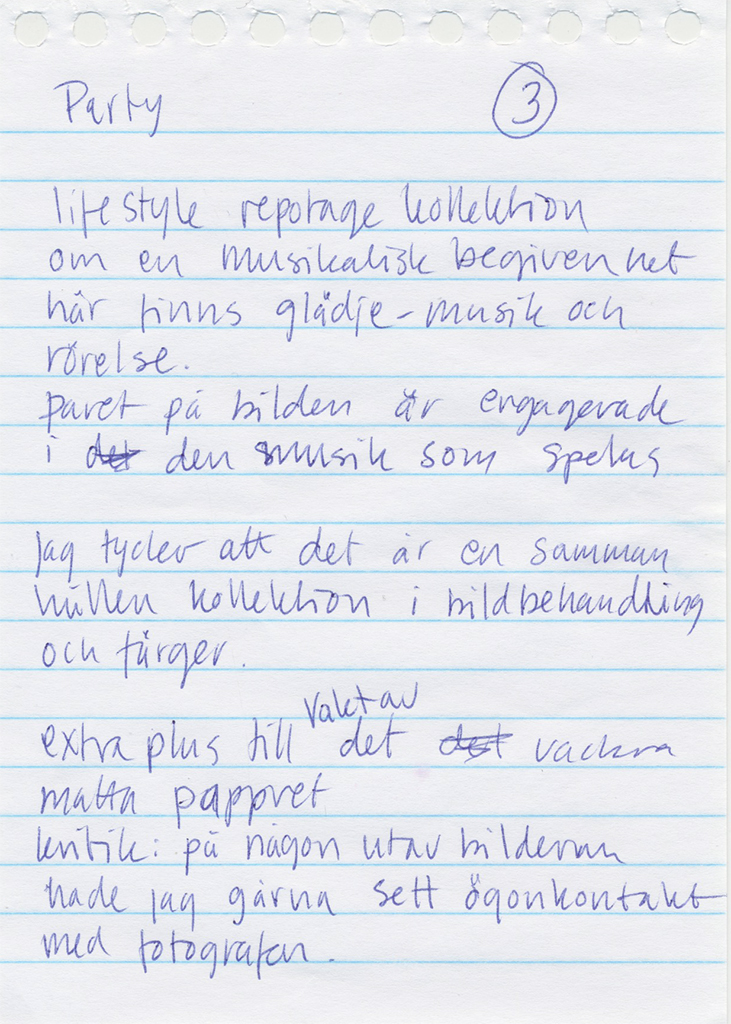 Party ③
lifestyle repotage kollektion
om en musikalisk begivenhet
här finns glädje-musik och
rörelse.
paret på bilden är engagerade
i den musik som spelas
jag tycker att det är en samman
hållen kollektion i bildbehandling
och färger.
valet av
extra plus till det vackra
matta pappret
kritik: på någon utav bilderna
hade jag gärna sett ögonkontakt
med fotografen.